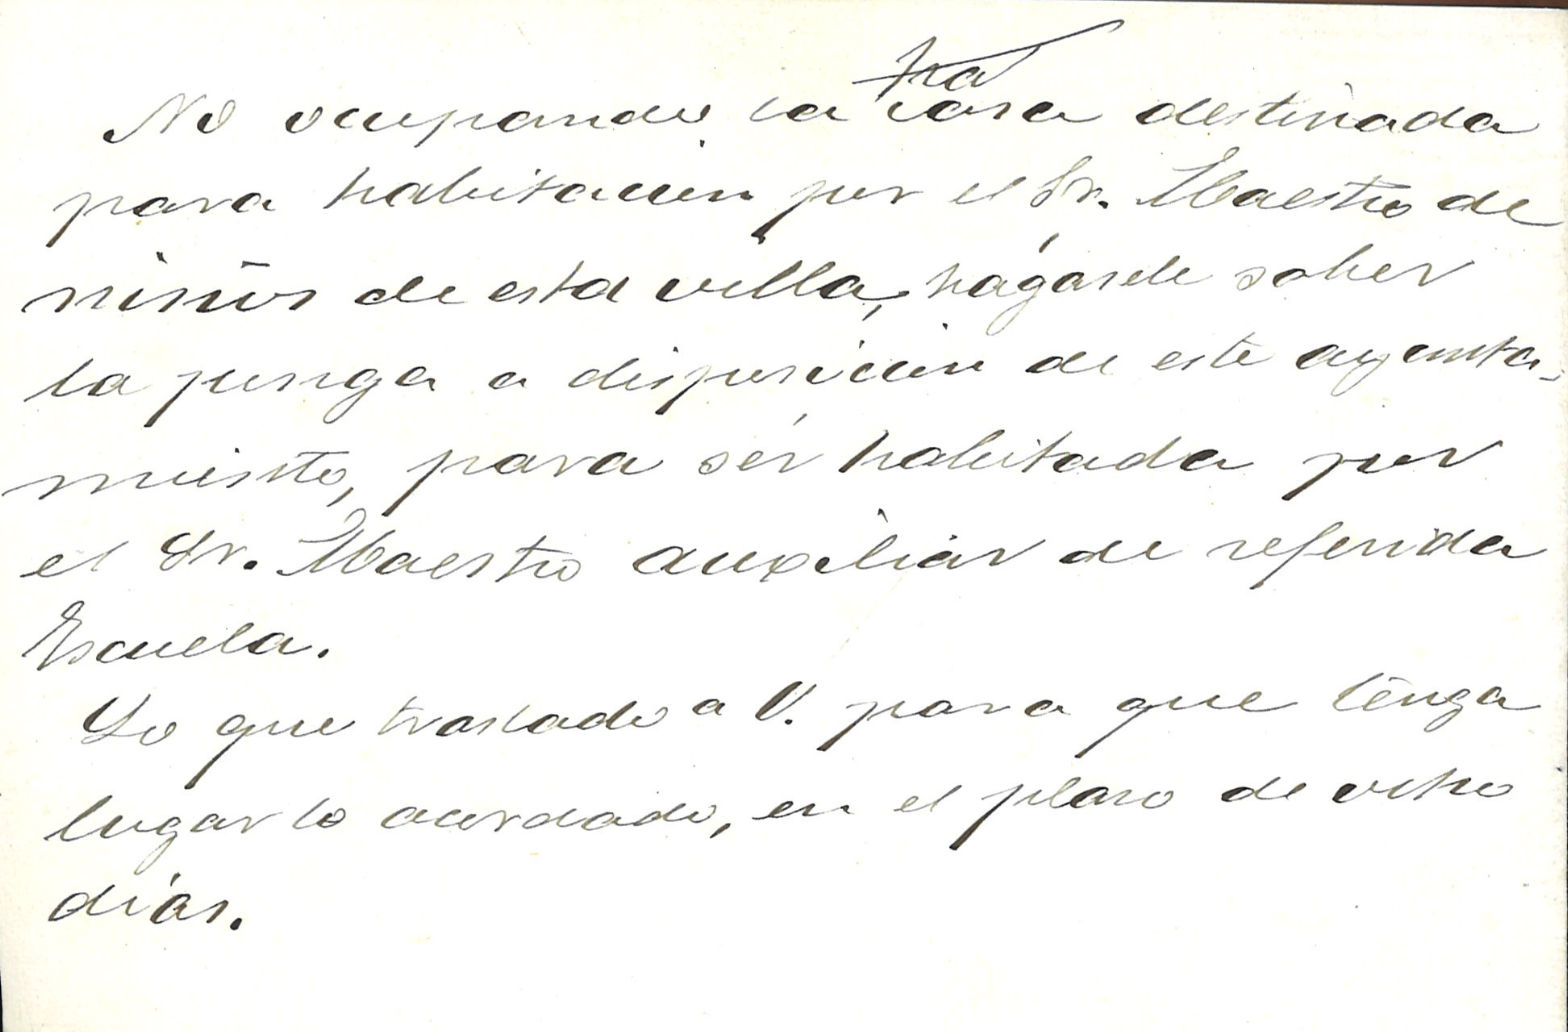 No ocupando la casa destinada
para habitación por el Sr. Maestro de
niños de esta villa, hágasele saber
la ponga a disposición de este ayunta-
miento, para sér habitada por
el Sr. Maestro auxiliar de referida
Escuela.
Lo que traslado a V. para que tenga
lugar lo acordado, en el plaso de ocho
días.